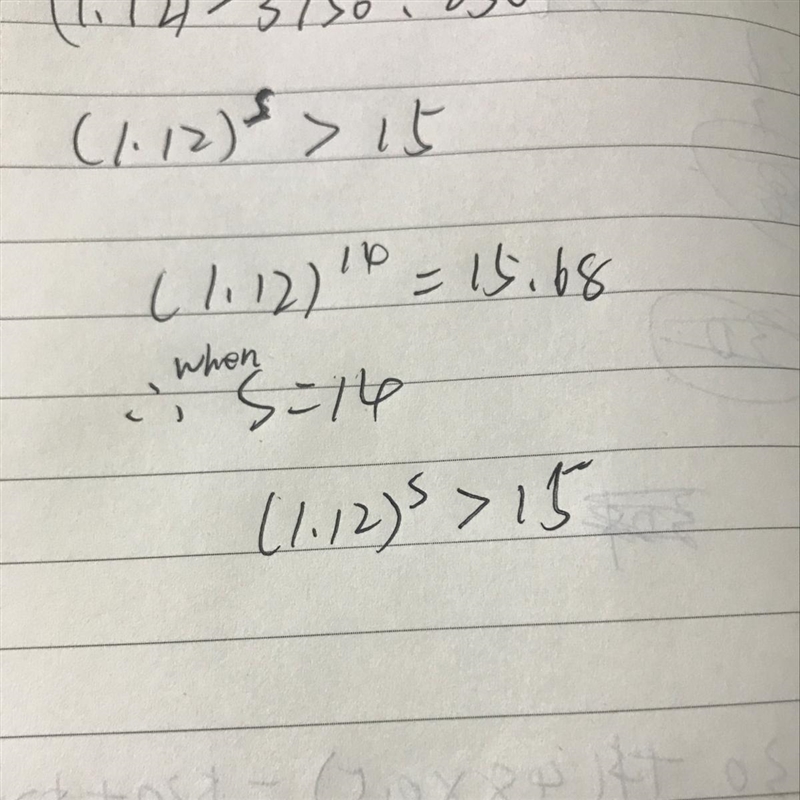 (1.12)^s > 15
(1.12)^14 = 15.68
∴ when s=14
(1.12)^s > 15